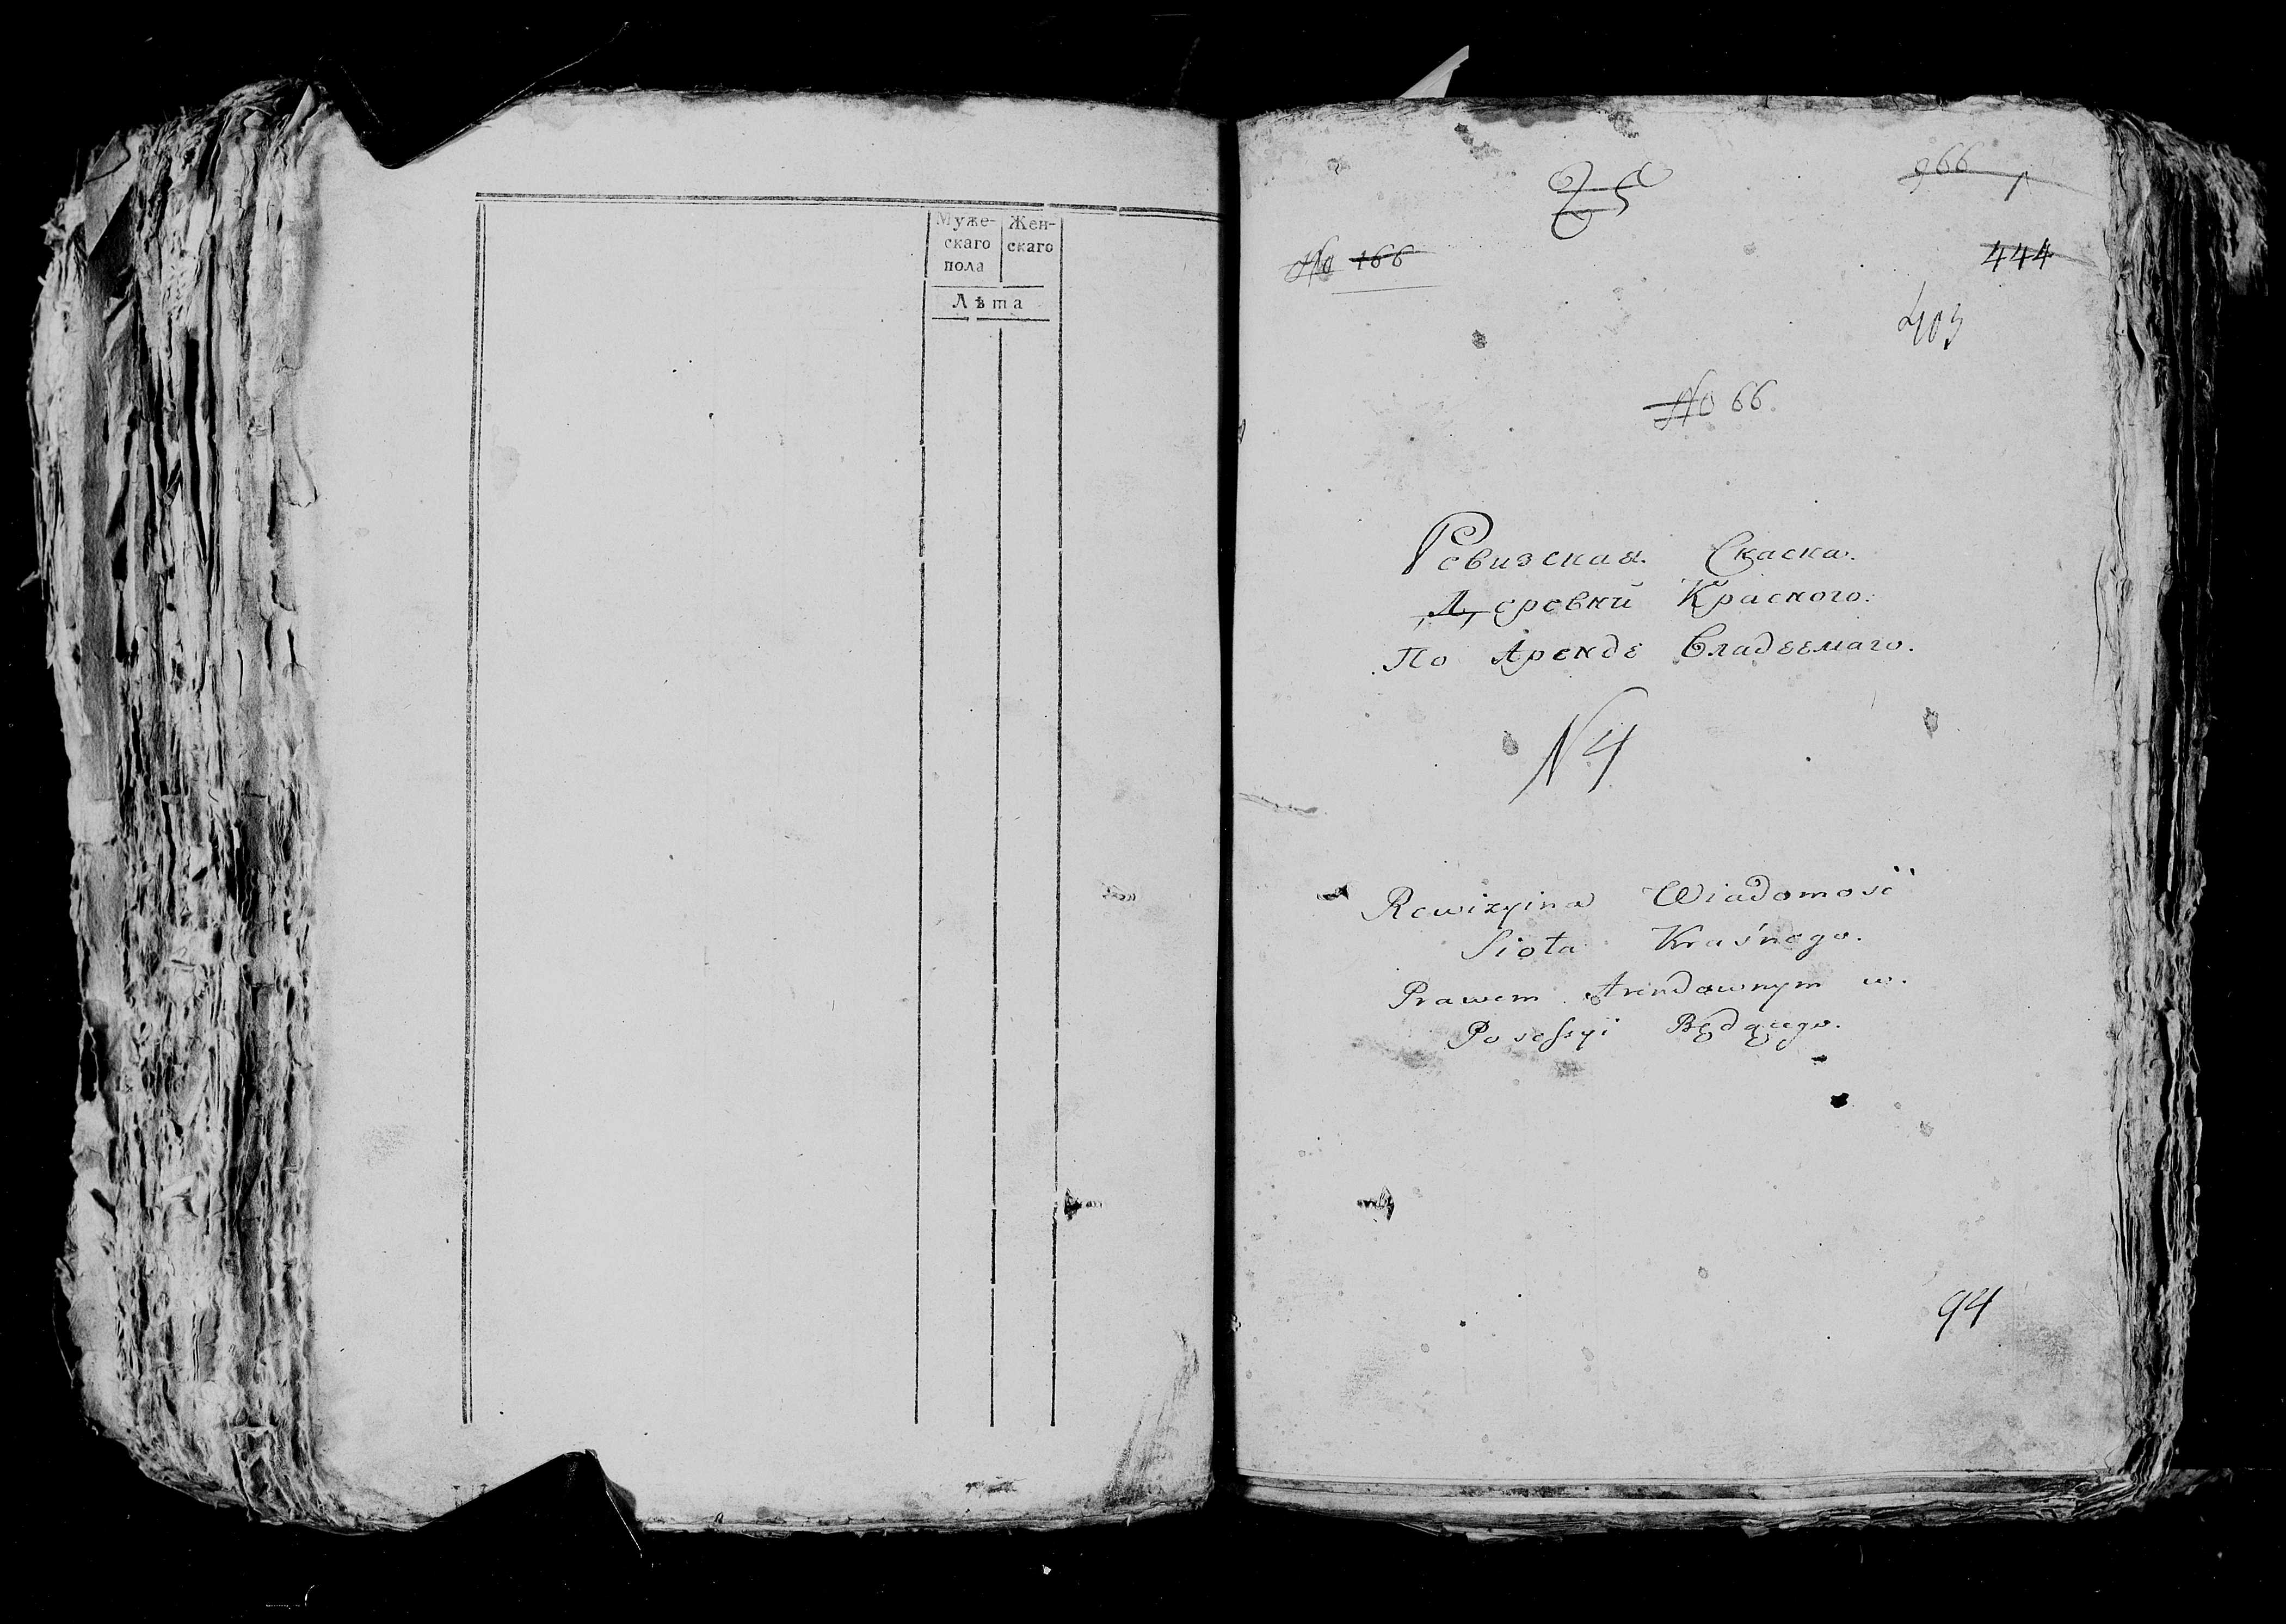 Муже- Жен-
скаго скаго
пола
Лѣта
966
No 166
444
403
No 66.
Ревизская Скаска.
Деревни Красного.
По Аренде Владеемаго.
N 4
Rewizyina Wiadomość
Sioła Kraśnego.
Prawem Arendownym w.
Posessyi Będącego.
94